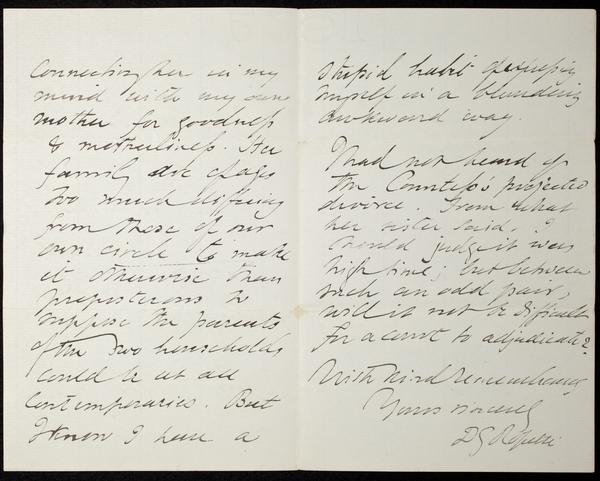 connecting her in my
mind with my own
mother for goodness
& motherliness. Her
family are of ages
too much differing
from those of our
own circle to make
it otherwise than
preposterous to
suppose the parents
of the two households
could be at all
contemporaries. But
I know I have a
stupid habit of expressing
myself in a blundering
awkward way.
I had not heard of
the Countess's projected
divorce. From what
her sister said, I
should judge it was
high time; but between
such an odd pair,
will it not be difficult
for a court to adjudicate?
With kind remembrances
Yours sincerely
D G Rossetti